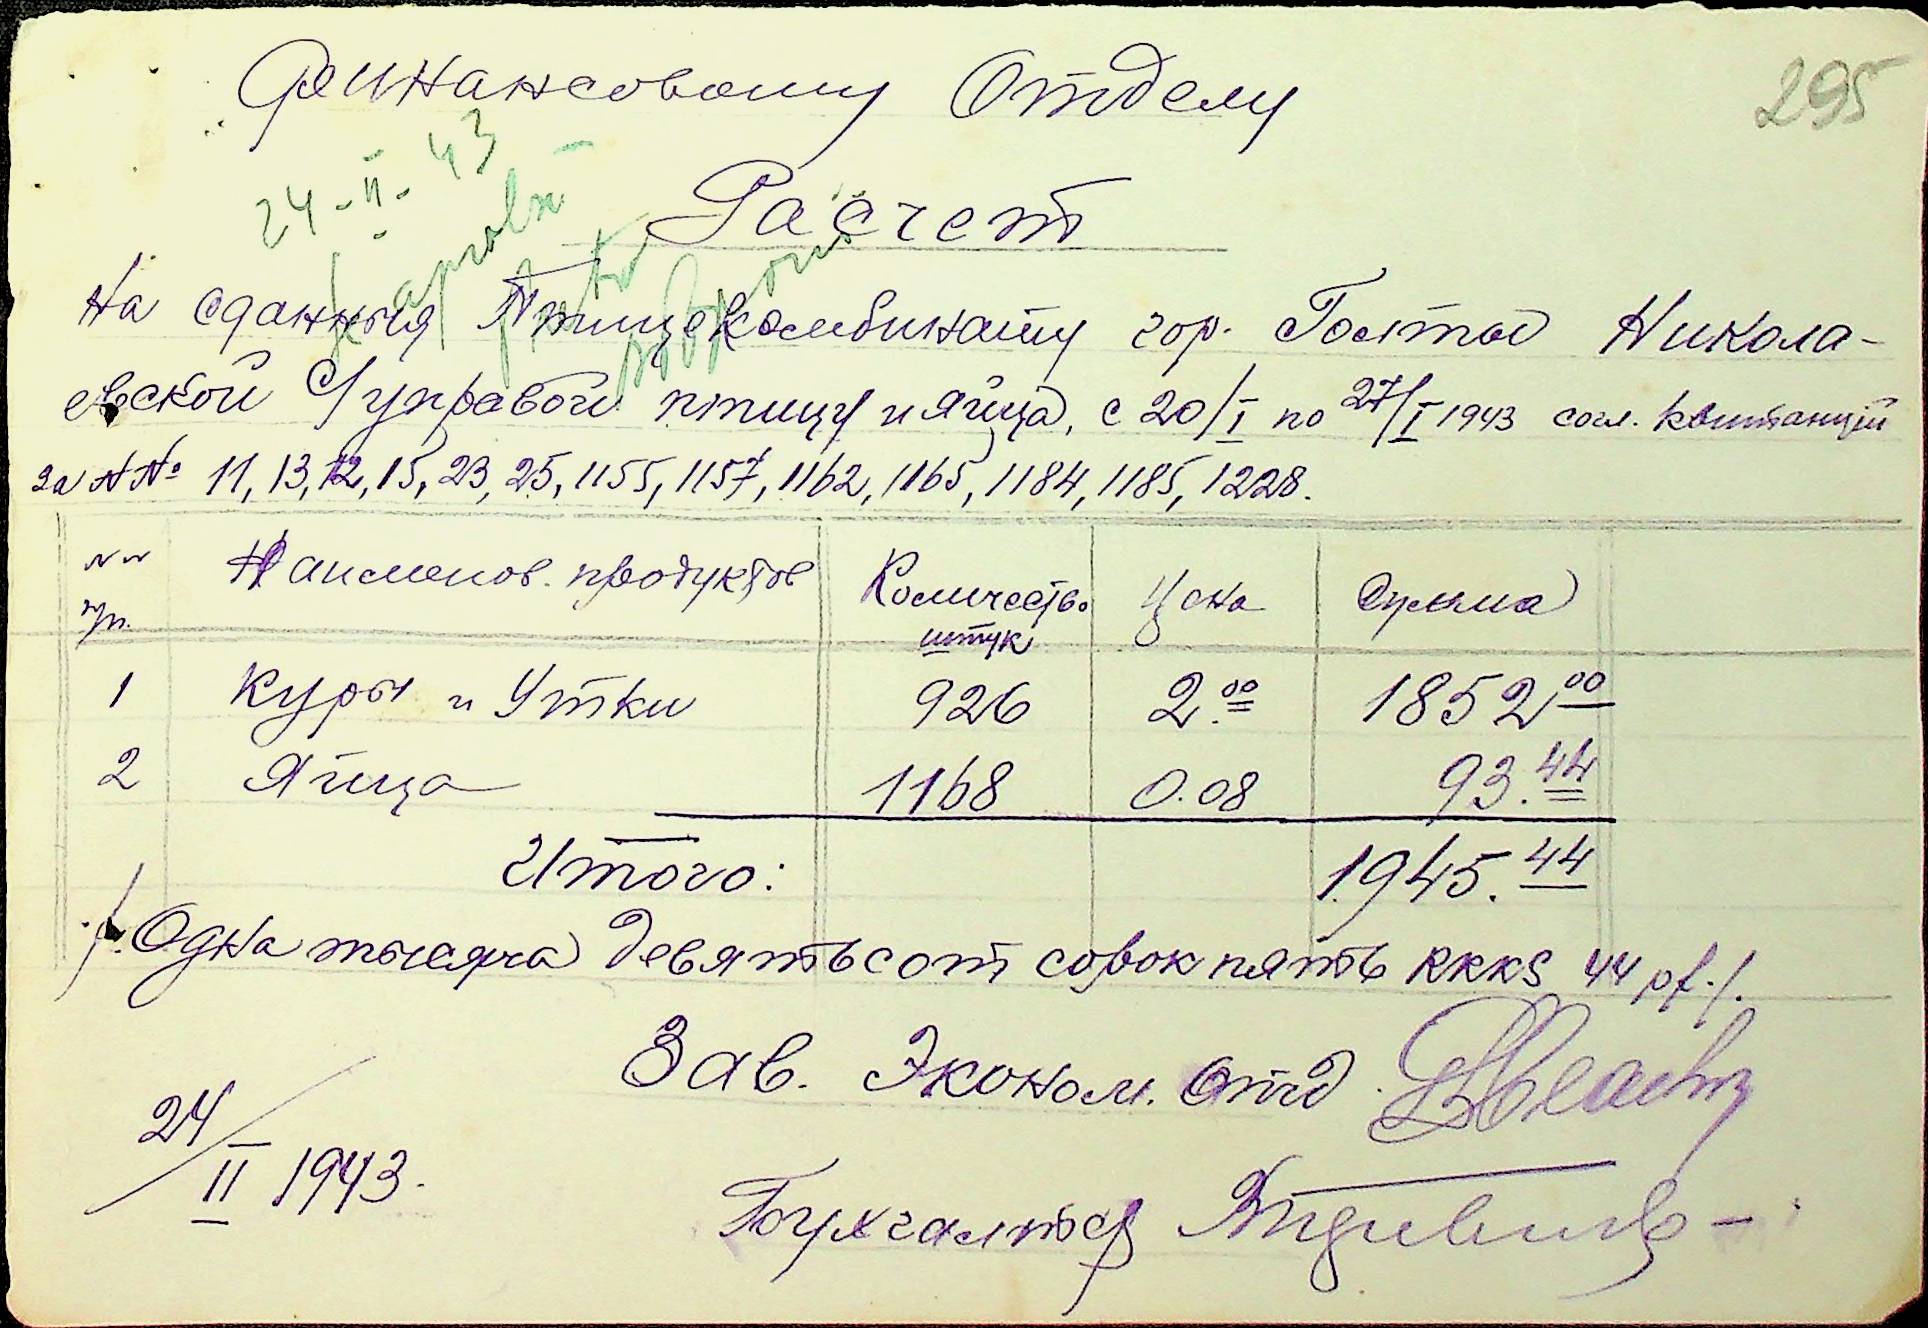 Финансовому Отделу
295
24-II-43
Расчет
На сданныя Птицекомбинату гор. Голты Никола-
евской Управой птицу и яйца, с 20/I по 27/I 1943 согл. квитанций
за №№ 11, 13, 12, 15, 23, 25, 1155, 1157, 1162, 1165, 1184, 1185, 1228.
№№ пп. Наименов. продуктов Количество штук Цена Сумма
1 Куры и Утки 926 2.00 1852 00
2 Яйца 1168 0.08 93.44
Итого: 1945.44
/. Одна тысяча девятьсот сорок пять RKKS 44 pf./.
Зав. Эконом. Отд.
24/II 1943.
Бухгалтер